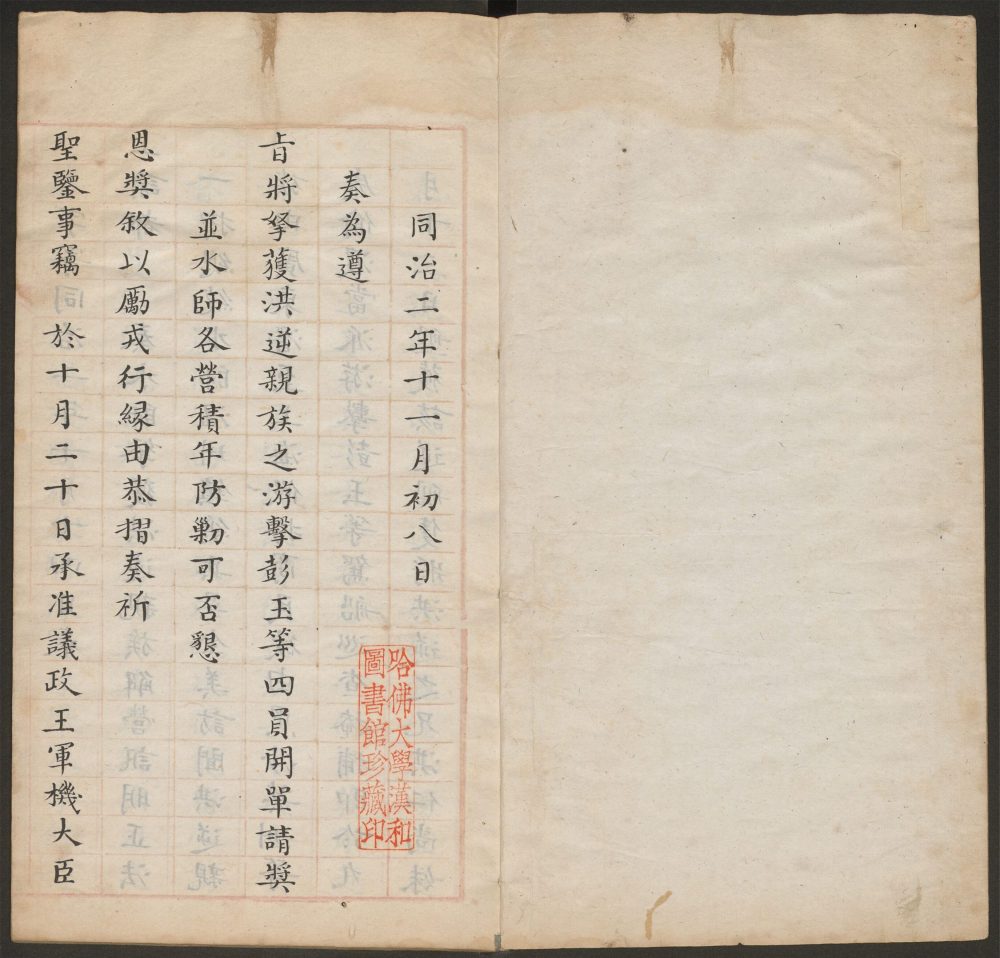 同治二年十一月初八日
奏為遵
旨將拏獲洪逆親族之游擊彭玉等四員開單請獎
並水師各營積年防剿可否懇
恩獎敘以勵戎行緣由恭摺奏祈
聖鑒事竊於十月二十日承准議政王軍機大臣
哈佛大學漢和
圖書館珍藏印